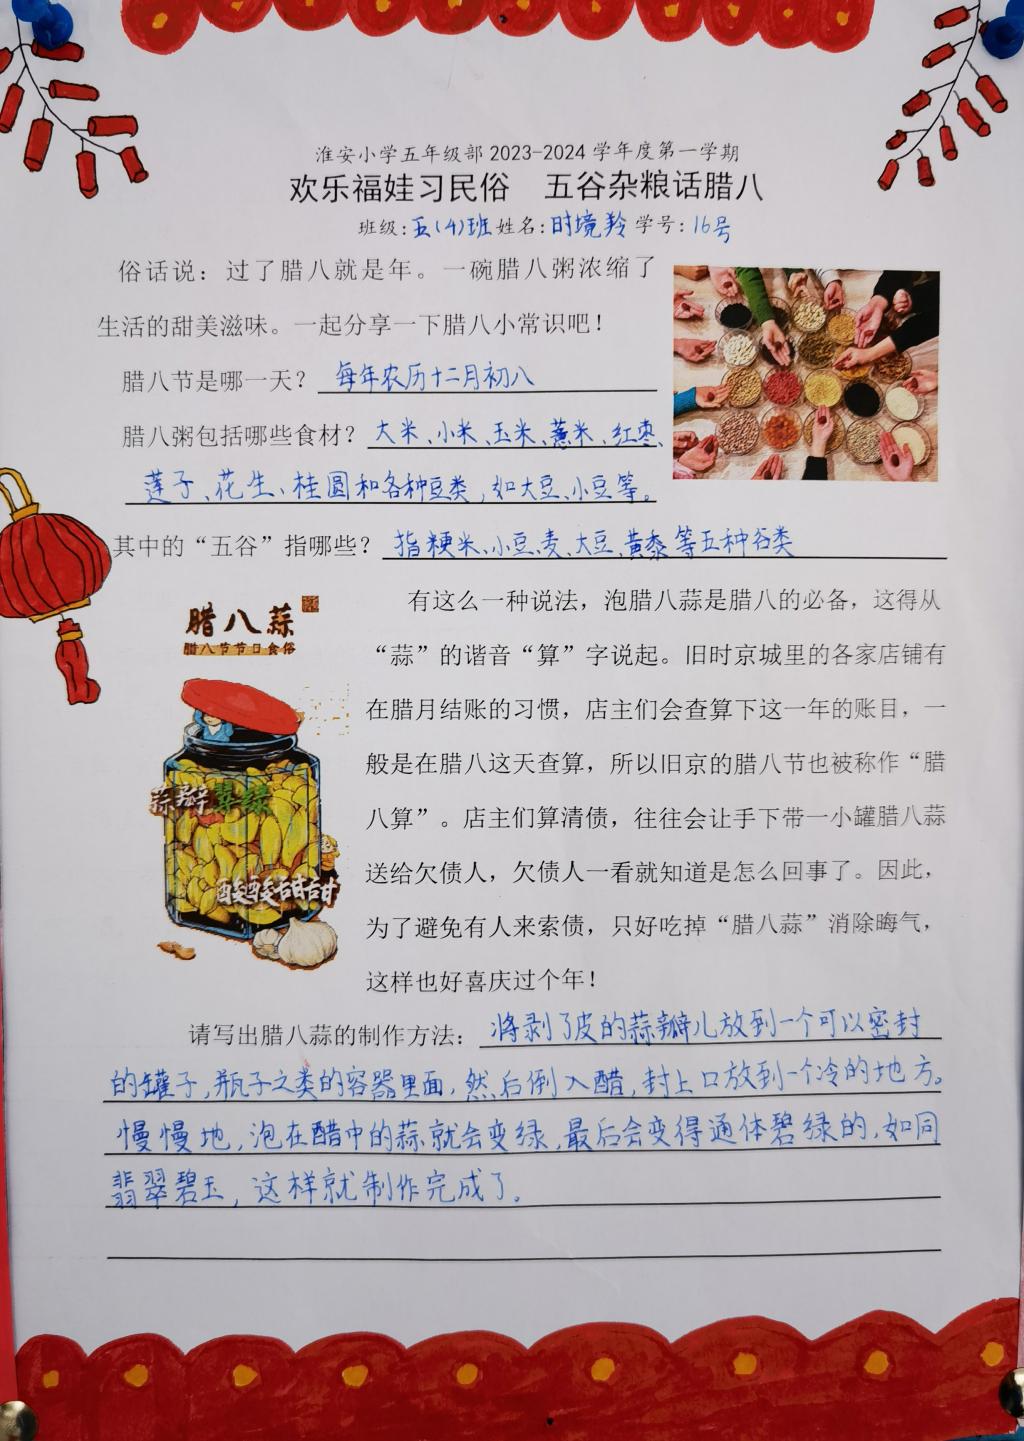 淮安小学五年级部 2023-2024 学年度第一学期
欢乐福娃习民俗 五谷杂粮话腊八
班级:五(4)班 姓名:时境羚 学号:16号
俗话说：过了腊八就是年。一碗腊八粥浓缩了
生活的甜美滋味。一起分享一下腊八小常识吧！
腊八节是哪一天？ 每年农历十二月初八
腊八粥包括哪些食材？ 大米、小米、玉米、薏米、红枣、
莲子、花生、桂圆和各种豆类，如大豆、小豆等。
其中的“五谷”指哪些？ 指粳米、小豆、麦、大豆、黄黍等五种谷类
腊八蒜
腊八节节日食俗
蒜瓣翠绿
酸酸甜甜
有这么一种说法，泡腊八蒜是腊八的必备，这得从
“蒜”的谐音“算”字说起。旧时京城里的各家店铺有
在腊月结账的习惯，店主们会查算下这一年的账目，一
般是在腊八这天查算，所以旧京的腊八节也被称作“腊
八算”。店主们算清债，往往会让手下带一小罐腊八蒜
送给欠债人，欠债人一看就知道是怎么回事了。因此，
为了避免有人来索债，只好吃掉“腊八蒜”消除晦气，
这样也好喜庆过个年！
请写出腊八蒜的制作方法： 将剥了皮的蒜瓣儿放到一个可以密封
的罐子，瓶子之类的容器里面，然后倒入醋，封上口放到一个冷的地方。
慢慢地，泡在醋中的蒜就会变绿，最后会变得通体碧绿的，如同
翡翠碧玉，这样就制作完成了。